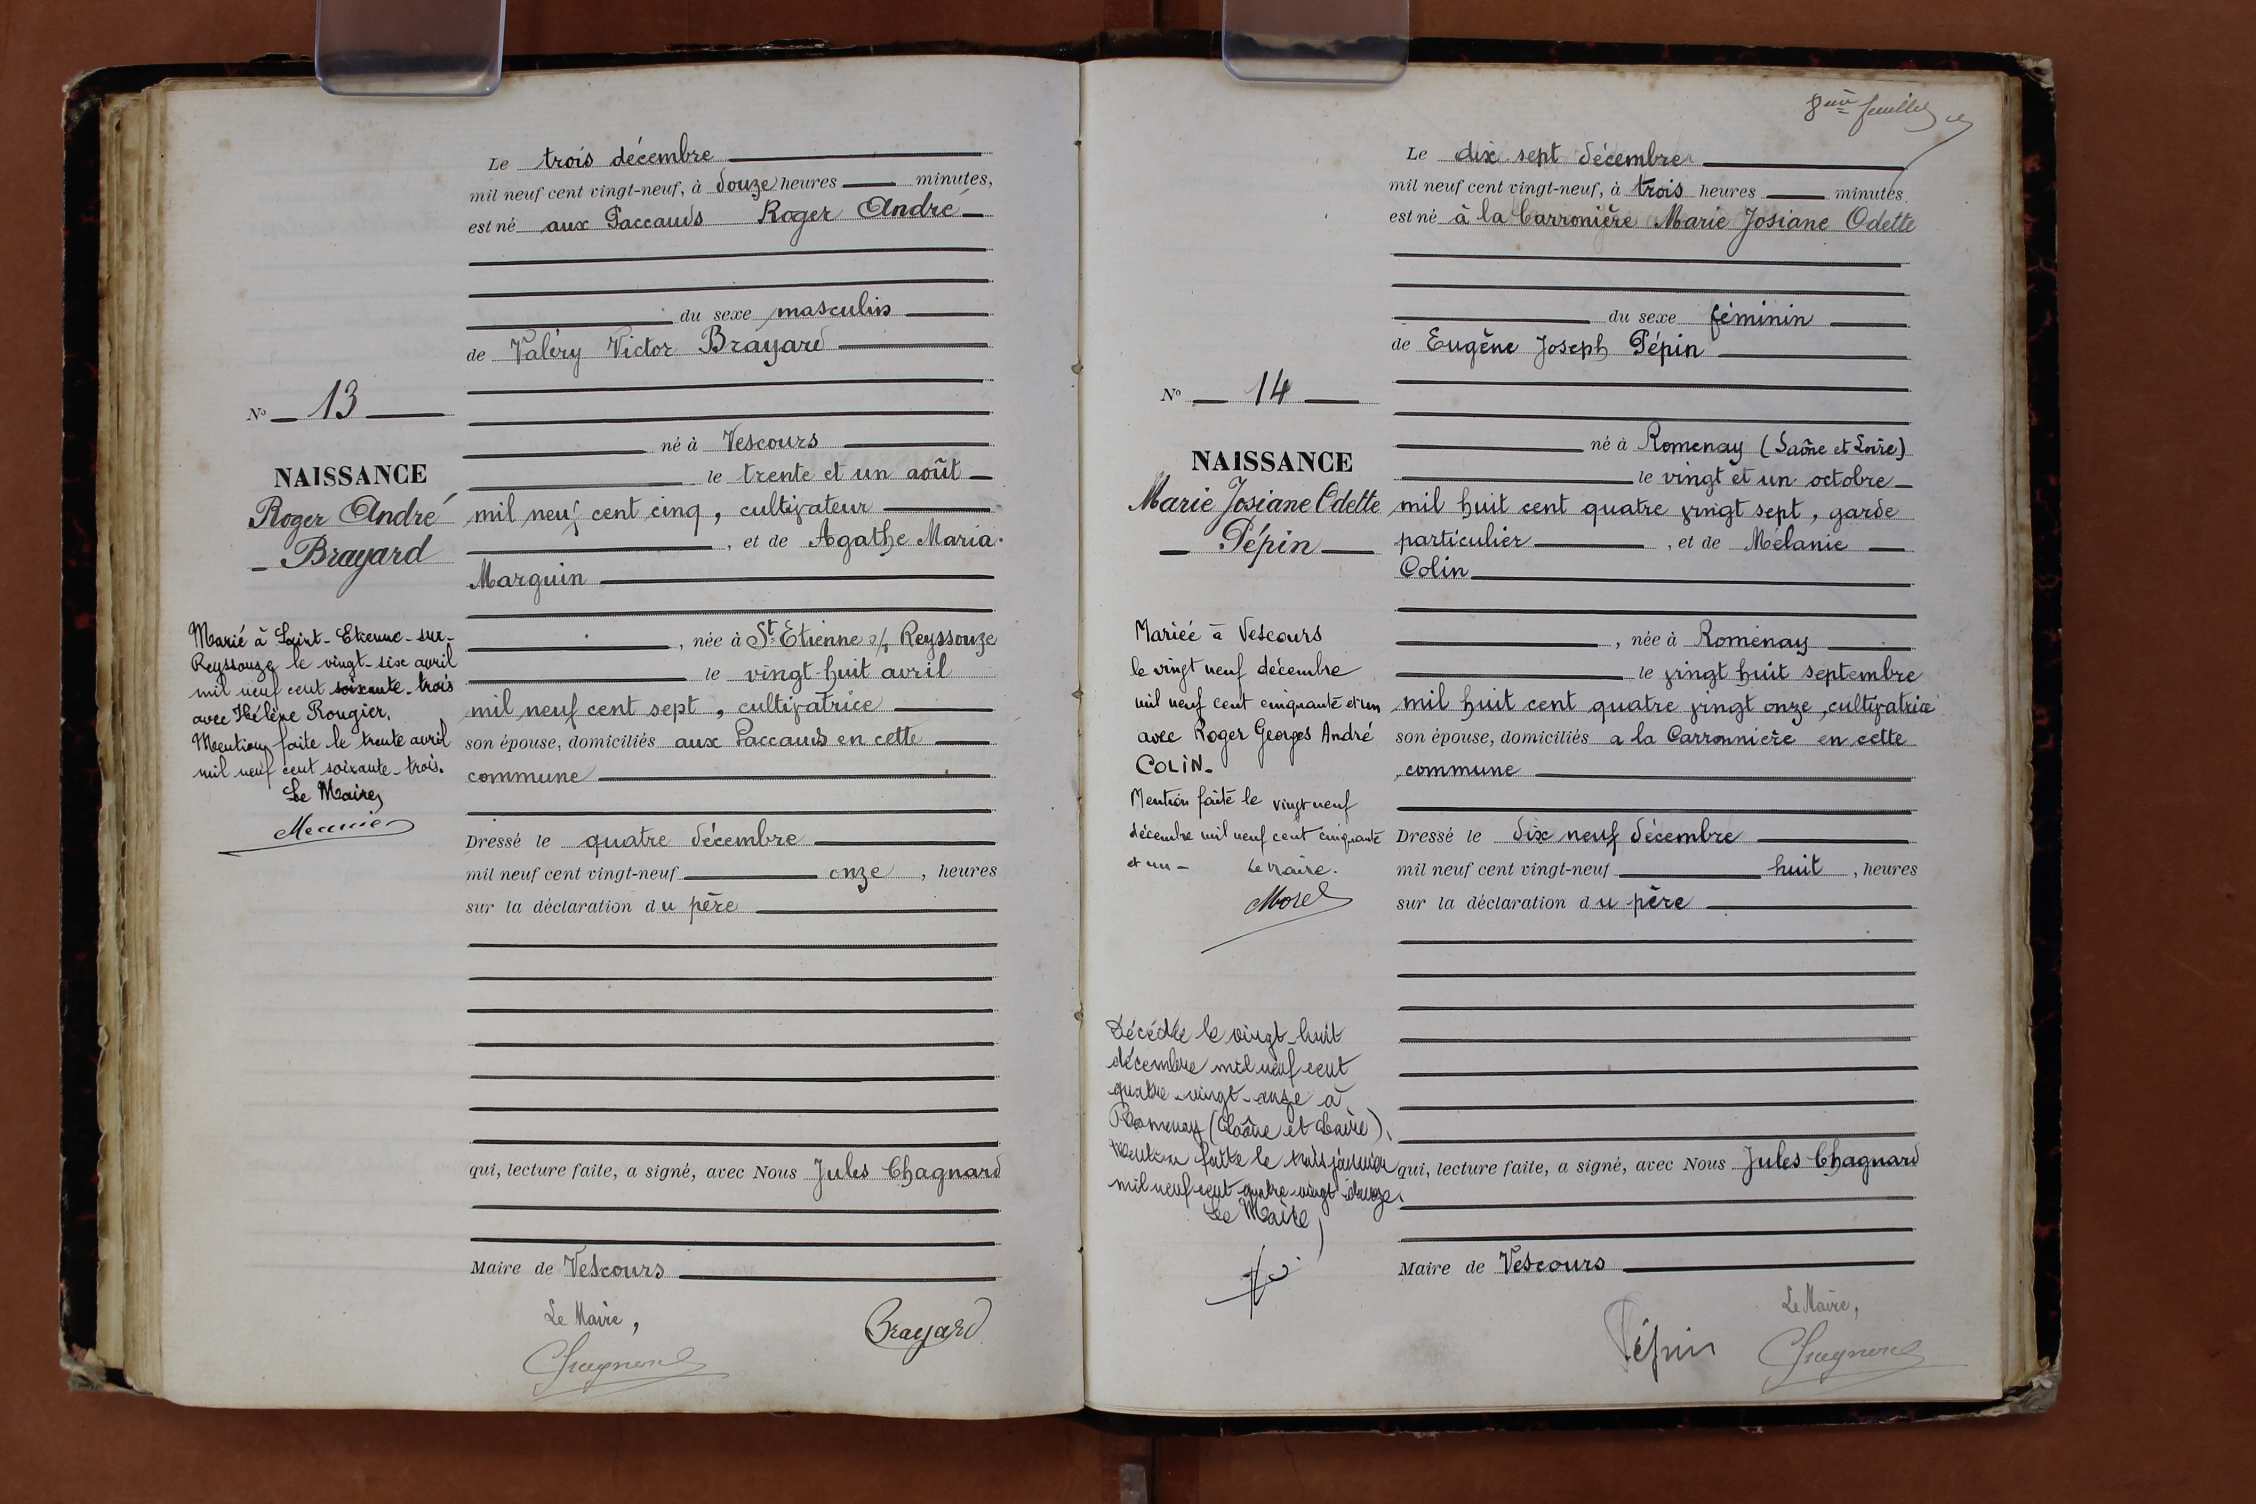 Le trois décembre
mil neuf cent vingt-neuf, à douze heures minutes,
est né aux Paccauds Roger André
du sexe masculin
de Valéry Victor Brayard
né à Vescours
le trente et un août
mil neuf cent cinq, cultivateur
, et de Agathe Maria
Marguin
, née à St Etienne s/ Reyssouze
le vingt-huit avril
mil neuf cent sept, cultivatrice
son épouse, domiciliés aux Paccauds en cette
commune
Dressé le quatre décembre
mil neuf cent vingt-neuf onze, heures
sur la déclaration du père
qui, lecture faite, a signé, avec Nous Jules Chagnard
Maire de Vescours
Le Maire,
Chagnard
Brayard
No 13
NAISSANCE
Roger André
Brayard
Marié à Saint-Etienne-sur-
Reyssouze le vingt-six avril
mil neuf cent soixante-trois
avec Hélène Rougier.
Mention faite le trente avril
mil neuf cent soixante-trois.
Le Maire,
Meunier
8ème feuillet
Le dix sept décembre
mil neuf cent vingt-neuf, à trois heures minutes
est né à la Carronière Marie Josiane Odette
du sexe féminin
de Eugène Joseph Pépin
né à Romenay (Saône et Loire)
le vingt et un octobre
mil huit cent quatre vingt sept, garde
particulier, et de Mélanie
Colin
, née à Romenay
le vingt huit septembre
mil huit cent quatre vingt onze, cultivatrice
son épouse, domiciliés a la Carronnière en cette
commune
Dressé le dix neuf décembre
mil neuf cent vingt-neuf huit, heures
sur la déclaration du père
qui, lecture faite, a signé, avec Nous Jules Chagnard
Maire de Vescours
Le Maire,
Pépin
Chagnard
No 14
NAISSANCE
Marie Josiane Odette
Pépin
Mariée à Vescours
le vingt neuf décembre
mil neuf cent cinquante et un
avec Roger Georges André
COLIN.
Mention faite le vingt neuf
décembre mil neuf cent cinquante
et un - Le Maire.
Morel
Décédée le vingt-huit
décembre mil neuf cent
quatre-vingt-onze à
Romenay (Saône et Loire).
Mention faite le trois janvier
mil neuf cent quatre-vingt-douze.
Le Maire,